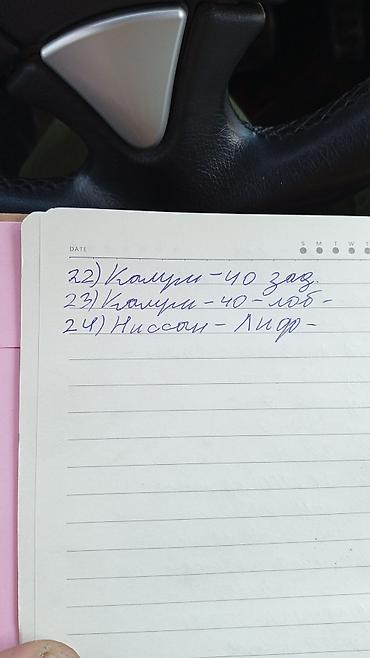 DATE S M T W T
22) Камри - 40 зад.
23) Камри - 40 - лоб -
24) Ниссан - Лифр -